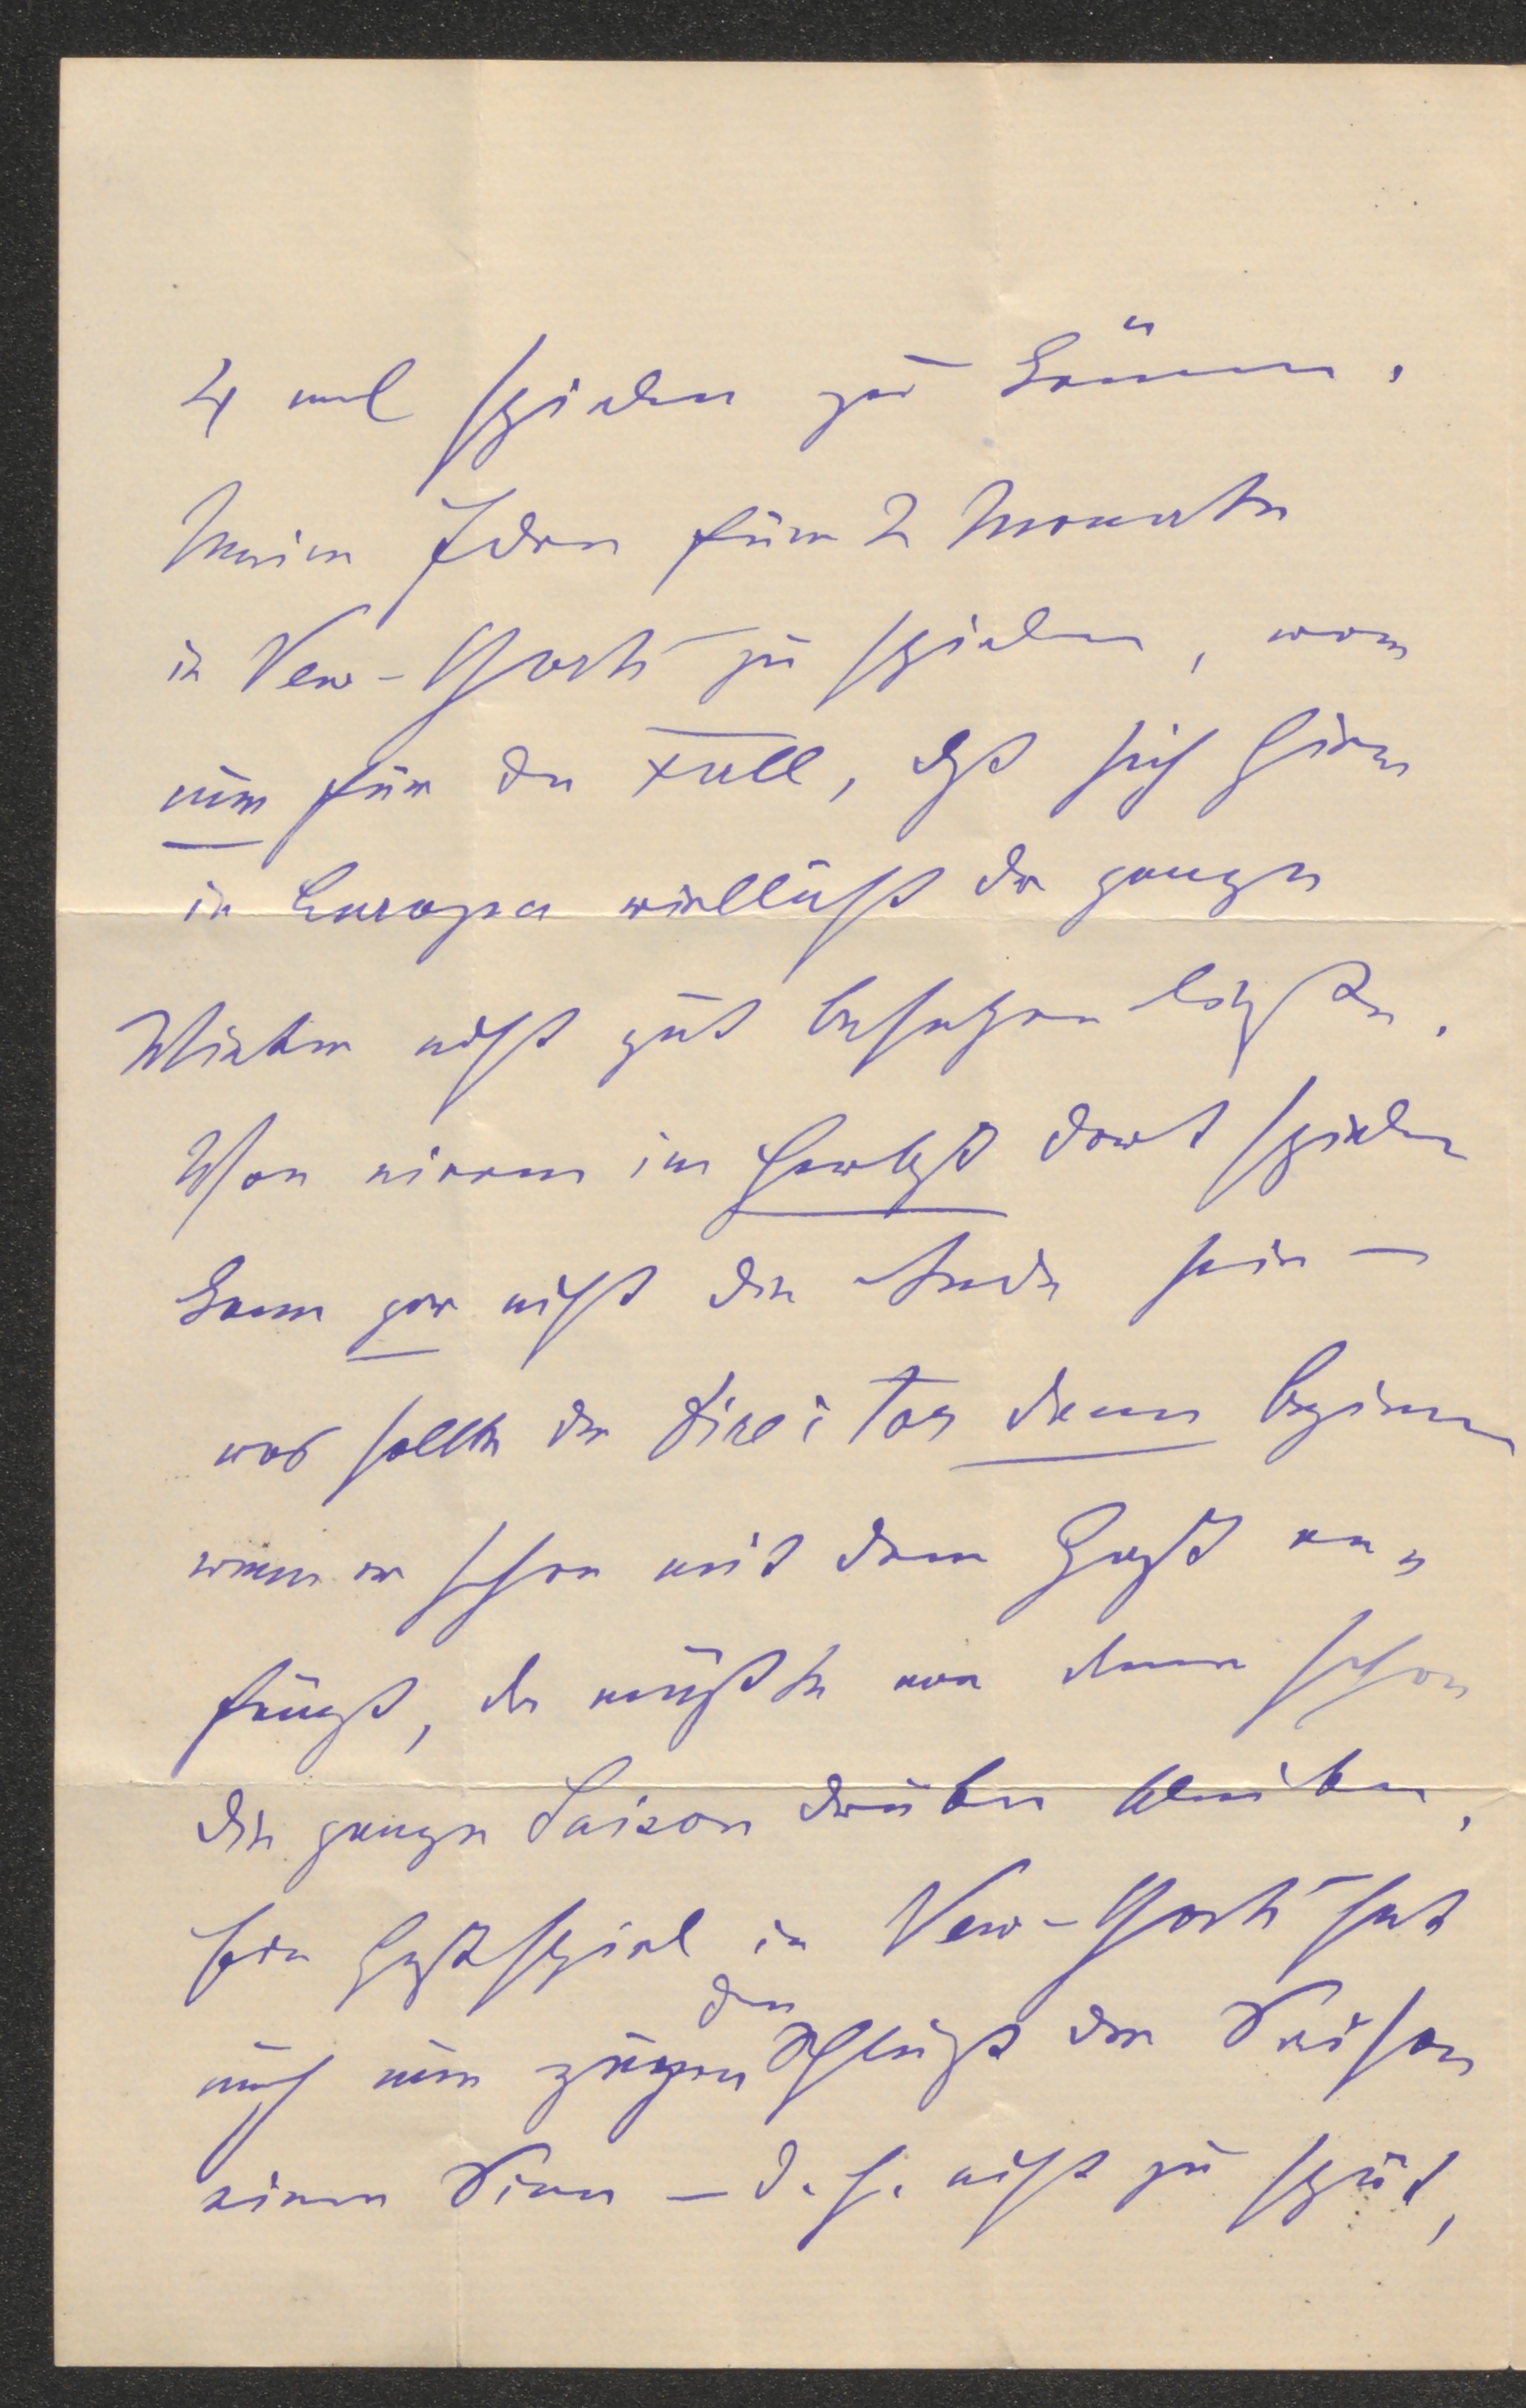 4 mal spielen zu können.
Meine Idee für 2 Monate
in New-York zu spielen, war
nur für den Fall, daß sich hier
in Europa vielleicht der ganze
Winter nicht gut besetzen ließe.
Von einem im Herbst dort spielen
kann gar nicht die Rede sein —
was sollte der Direktor dann beginnen
wenn er schon mit dem Gast an„
fängt, da müßte man dann schon
die ganze Saison drüben bleiben.
Ein Gastspiel in New-York hat
auch nur gegen den Schluß der Saison
einen Sinn — d. h. nicht zu spät,